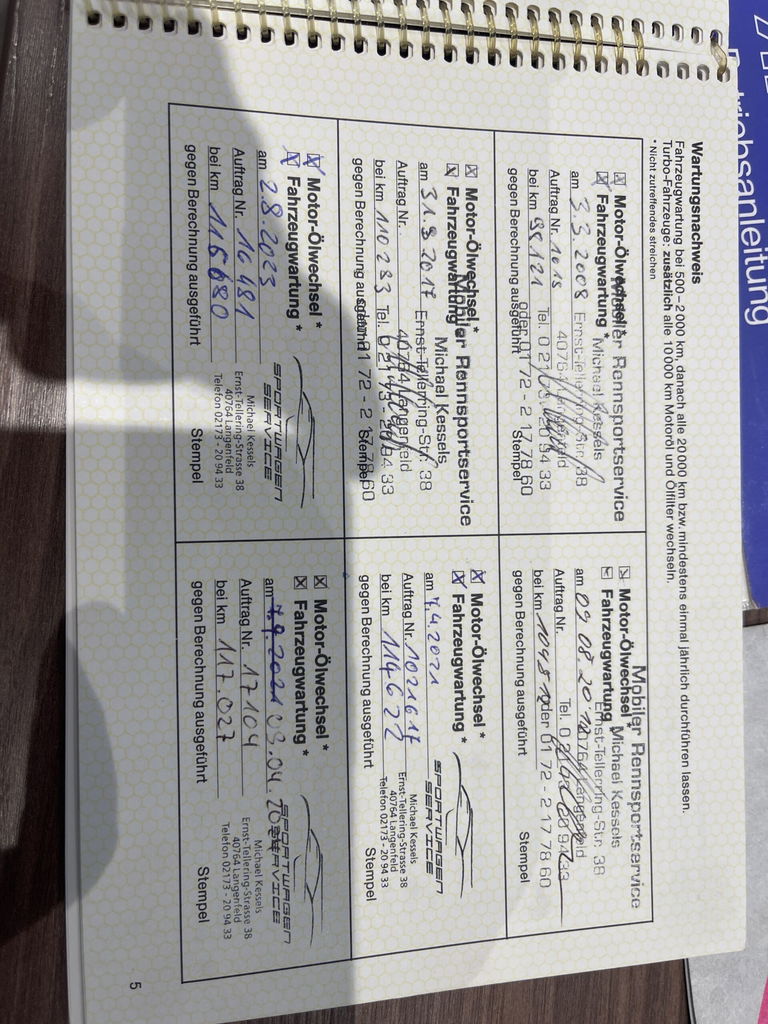 Betriebsanleitung
Wartungsnachweis
Fahrzeugwartung bei 500–2000 km, danach alle 20 000 km bzw. mindestens einmal jährlich durchführen lassen.
Turbo-Fahrzeuge: zusätzlich alle 10 000 km Motoröl und Ölfilter wechseln.
* Nicht zutreffendes streichen
Motor-Ölwechsel *
Fahrzeugwartung *
am 3.3. 2008
Auftrag Nr. 1015
bei km 98121
gegen Berechnung ausgeführt
Mobiler Rennsportservice
Michael Kessels
Ernst-Tellerring-Str. 38
40764 Langenfeld
Tel. 0 21 73 - 20 94 33
oder 01 72 - 2 17 78 60
Stempel
Motor-Ölwechsel *
Fahrzeugwartung *
am 09 08. 20
Auftrag Nr.
bei km
gegen Berechnung ausgeführt
Mobiler Rennsportservice
Michael Kessels
Ernst-Tellerring-Str. 38
40764 Langenfeld
Tel. 0 21 73 - 20 94 33
oder 01 72 - 2 17 78 60
Stempel
Motor-Ölwechsel *
Fahrzeugwartung *
am 31. 8 2017
Auftrag Nr.
bei km 110 283
gegen Berechnung ausgeführt
Mobiler Rennsportservice
Michael Kessels
Ernst-Tellerring-Str. 38
40764 Langenfeld
Tel. 0 21 73 - 20 94 33
oder 01 72 - 2 17 78 60
Stempel
Motor-Ölwechsel *
Fahrzeugwartung *
am 7.4.2021
Auftrag Nr. 1021617
bei km 114622
gegen Berechnung ausgeführt
SPORTWAGEN
SERVICE
Michael Kessels
Ernst-Tellering-Strasse 38
40764 Langenfeld
Telefon 02173 - 20 94 33
Stempel
Motor-Ölwechsel *
Fahrzeugwartung *
am 2.8.2023
Auftrag Nr. 16 481
bei km 116 680
gegen Berechnung ausgeführt
SPORTWAGEN
SERVICE
Michael Kessels
Ernst-Tellering-Strasse 38
40764 Langenfeld
Telefon 02173 - 20 94 33
Stempel
Motor-Ölwechsel *
Fahrzeugwartung *
am 03.04.
Auftrag Nr. 17104
bei km 117.027
gegen Berechnung ausgeführt
SPORTWAGEN
SERVICE
Michael Kessels
Ernst-Tellering-Strasse 38
40764 Langenfeld
Telefon 02173 - 20 94 33
Stempel
5